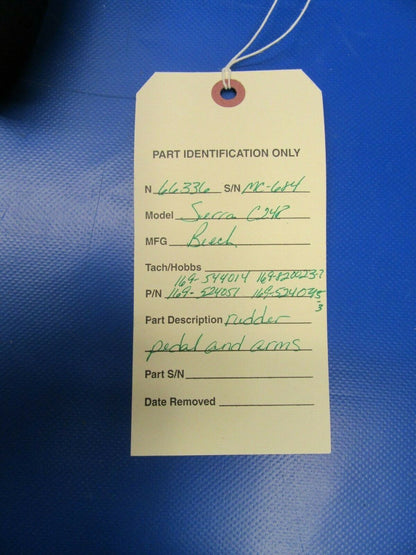 PART IDENTIFICATION ONLY
N 66336 S/N MC-684
Model Sierra C24R
MFG Beech
Tach/Hobbs
169-544014 169-820023-7
P/N 169-524051 169-524035
-3
Part Description rudder
pedal and arms
Part S/N
Date Removed